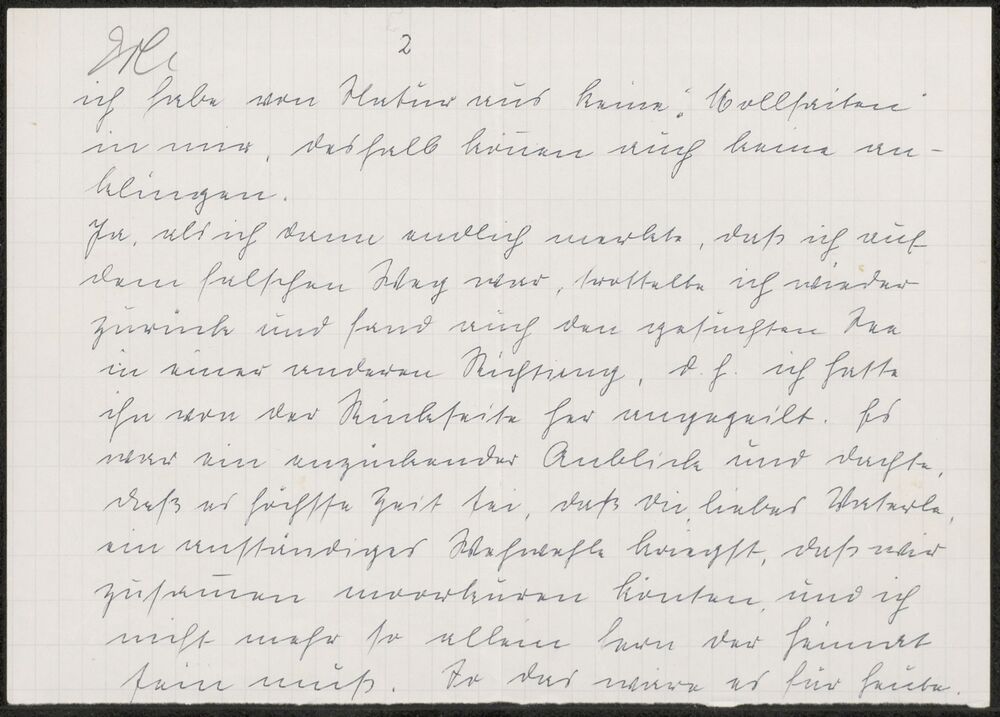 2
ich habe von Natur aus keine „Mollsaiten"
in mir, deshalb können auch keine an-
klingen.
Ja, als ich dann endlich merkte, daß ich auf
dem falschen Weg war, trottelte ich wieder
zurück und fand auch den gesuchten See
in einer anderen Richtung, d. h. ich hatte
ihn von der Rückseite her angepeilt. Es
war ein entzückender Anblick und dachte,
daß es höchste Zeit sei, daß Du, liebes Vaterle,
ein anständiges Wehwehle kriegst, daß wir
zusammen moorkuren könten, und ich
nicht mehr so allein fern der Heimat
sein muß. So das wäre es für heute.